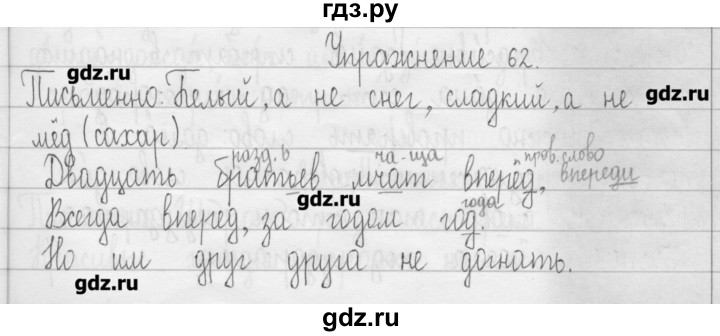 гдз.ру
Упражнение 62.
gdz.ru
Письменно: Белый, а не снег, сладкий, а не
gdz.ru
мёд (сахар).
разд. ь ча-ща пров. слово
Двадцать братьев мчат вперёд, впереди
gdz.ru
года
Всегда вперёд, за годом год.
Но им друг друга не догнать.
gdz.ru
gdz.ru
gdz.ru